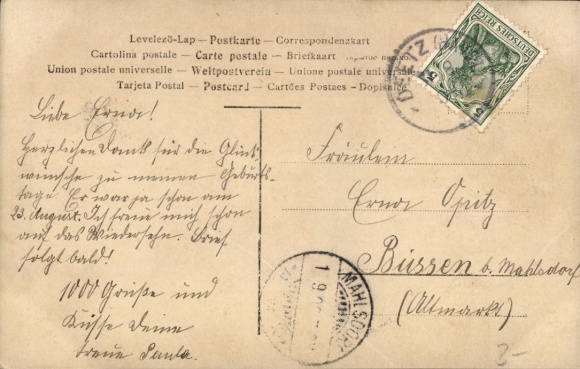 Levelező-Lap — Postkarte — Correspondenzkart
Cartolina postale — Carte postale — Briefkaart
Union postale universelle — Weltpostverein — Unione postale universale
Tarjeta Postal — Postcard — Cartões Postaes — Dopisnice
DEUTSCHES REICH
5
5
DEETZ
Liebe Erna!
Herzlichen Dank für die Glück-
wünsche zu meinem Geburts-
tage. Er war ja schon am
23. August. Ich freue mich schon
auf das Wiedersehn. Brief
folgt bald!
1000 Grüße und
Küsse Deine
treue Paula.
Fräulein
Erna Opitz
Büssen b. Mahlsdorf
(Altmarkt)
MAHLSDORF
1 9
3-